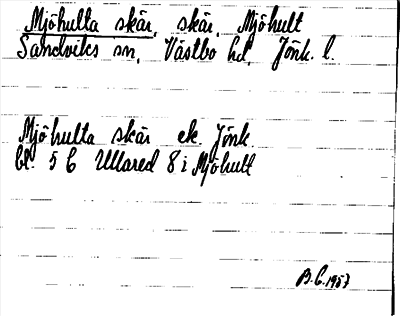 Mjöhulta skär, skär, Mjöhult
Sandviks sn, Västbo hd, Jönk. l.
Mjöhulta skär ek. Jönk.
bl. 5 C Ullared 8 i Mjöhult
B.C. 1957